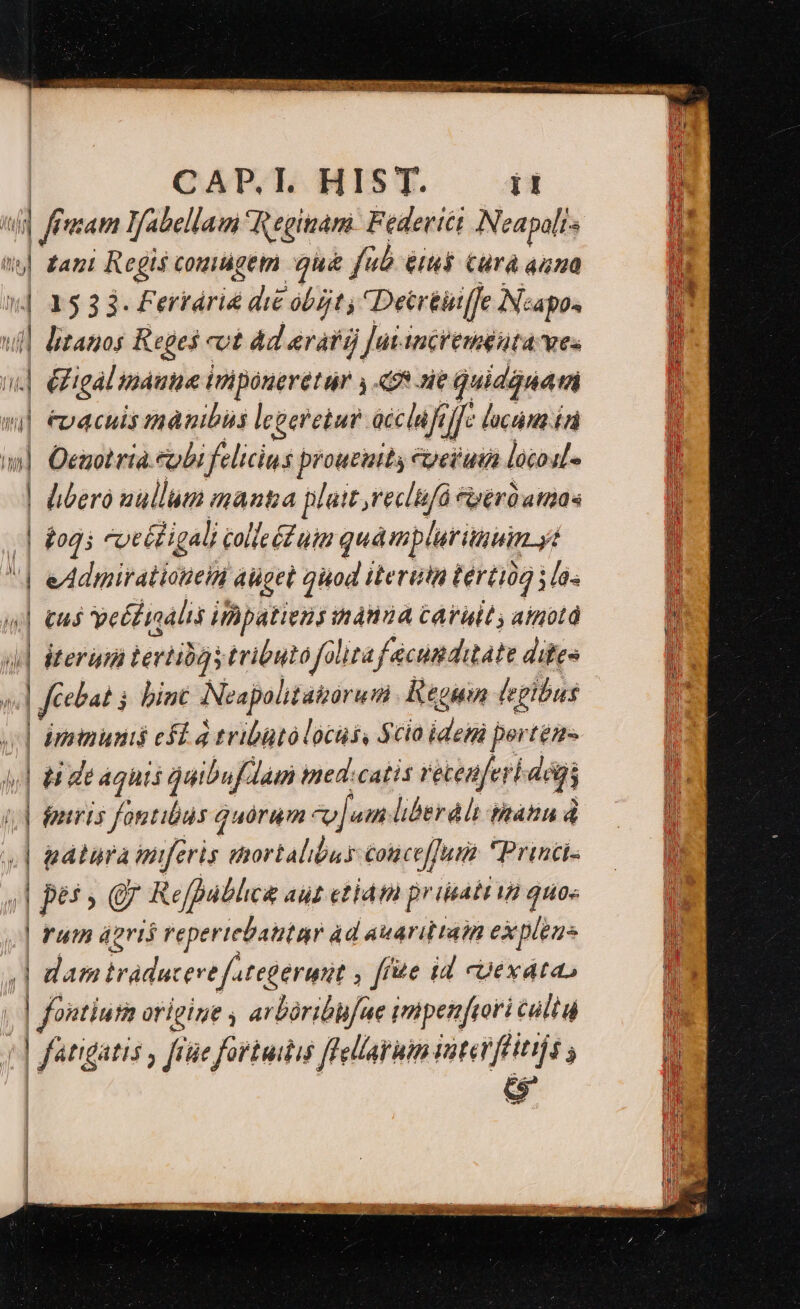 CAP. I. HIST. 11
ſimam Iſabellam Reginam Federici Neapoli-
tani Regis coniugem quæ ſub eius cura anno
1533. Ferrariæ diē obijt; Decreuiſſe Neapo-
litanos Reges vt ad ærarij ſui incrementa ve-
ctigal mannæ imponeretur, & ne quidquam
vacuis manibus legeretur accluſiſſe locum in
Oenotria vbi felicius prouenit, verum loco il-
libero nullum manna pluit, recluſo vero amo-
toq; vectigali collectum quamplurimum. yt
Admirationem auget quod iterum tertioq; lo-
cus vectigalis impatiens manna caruit, amotà
iterum tertiòq; tributo ſolita fæcunditate dite-
ſcebat; hinc Neapolitanorum Regum legibus
immunis eſt à tributo locus. Scio idem porten-
ti de aquis quibuſdam medicatis recenſeri deq;
muris fontibus quorum vſum liberali manu à
natura miſeris mortalibus conceſſum Princi-
pes, & Reſpublicæ aut etiam priuati in quo-
rum agris reperiebantur ad auaritiam explen-
dam traducere ſategerunt, ſiue id vexata,
fontium origine, arboribuſue impenſiori cultu
fatigatis, ſiue fortuitis ſtellarum interſtitijs,
&